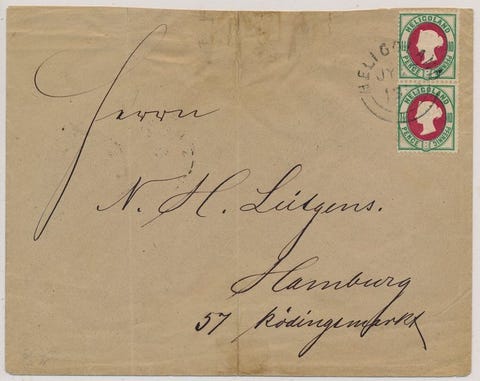 HELIGOLAND
PENCE
HELIGO
JY
HELIGOLAND
PENCE
Herrn
N. H. Lütgens.
Hamburg
57 Rödingsmarkt